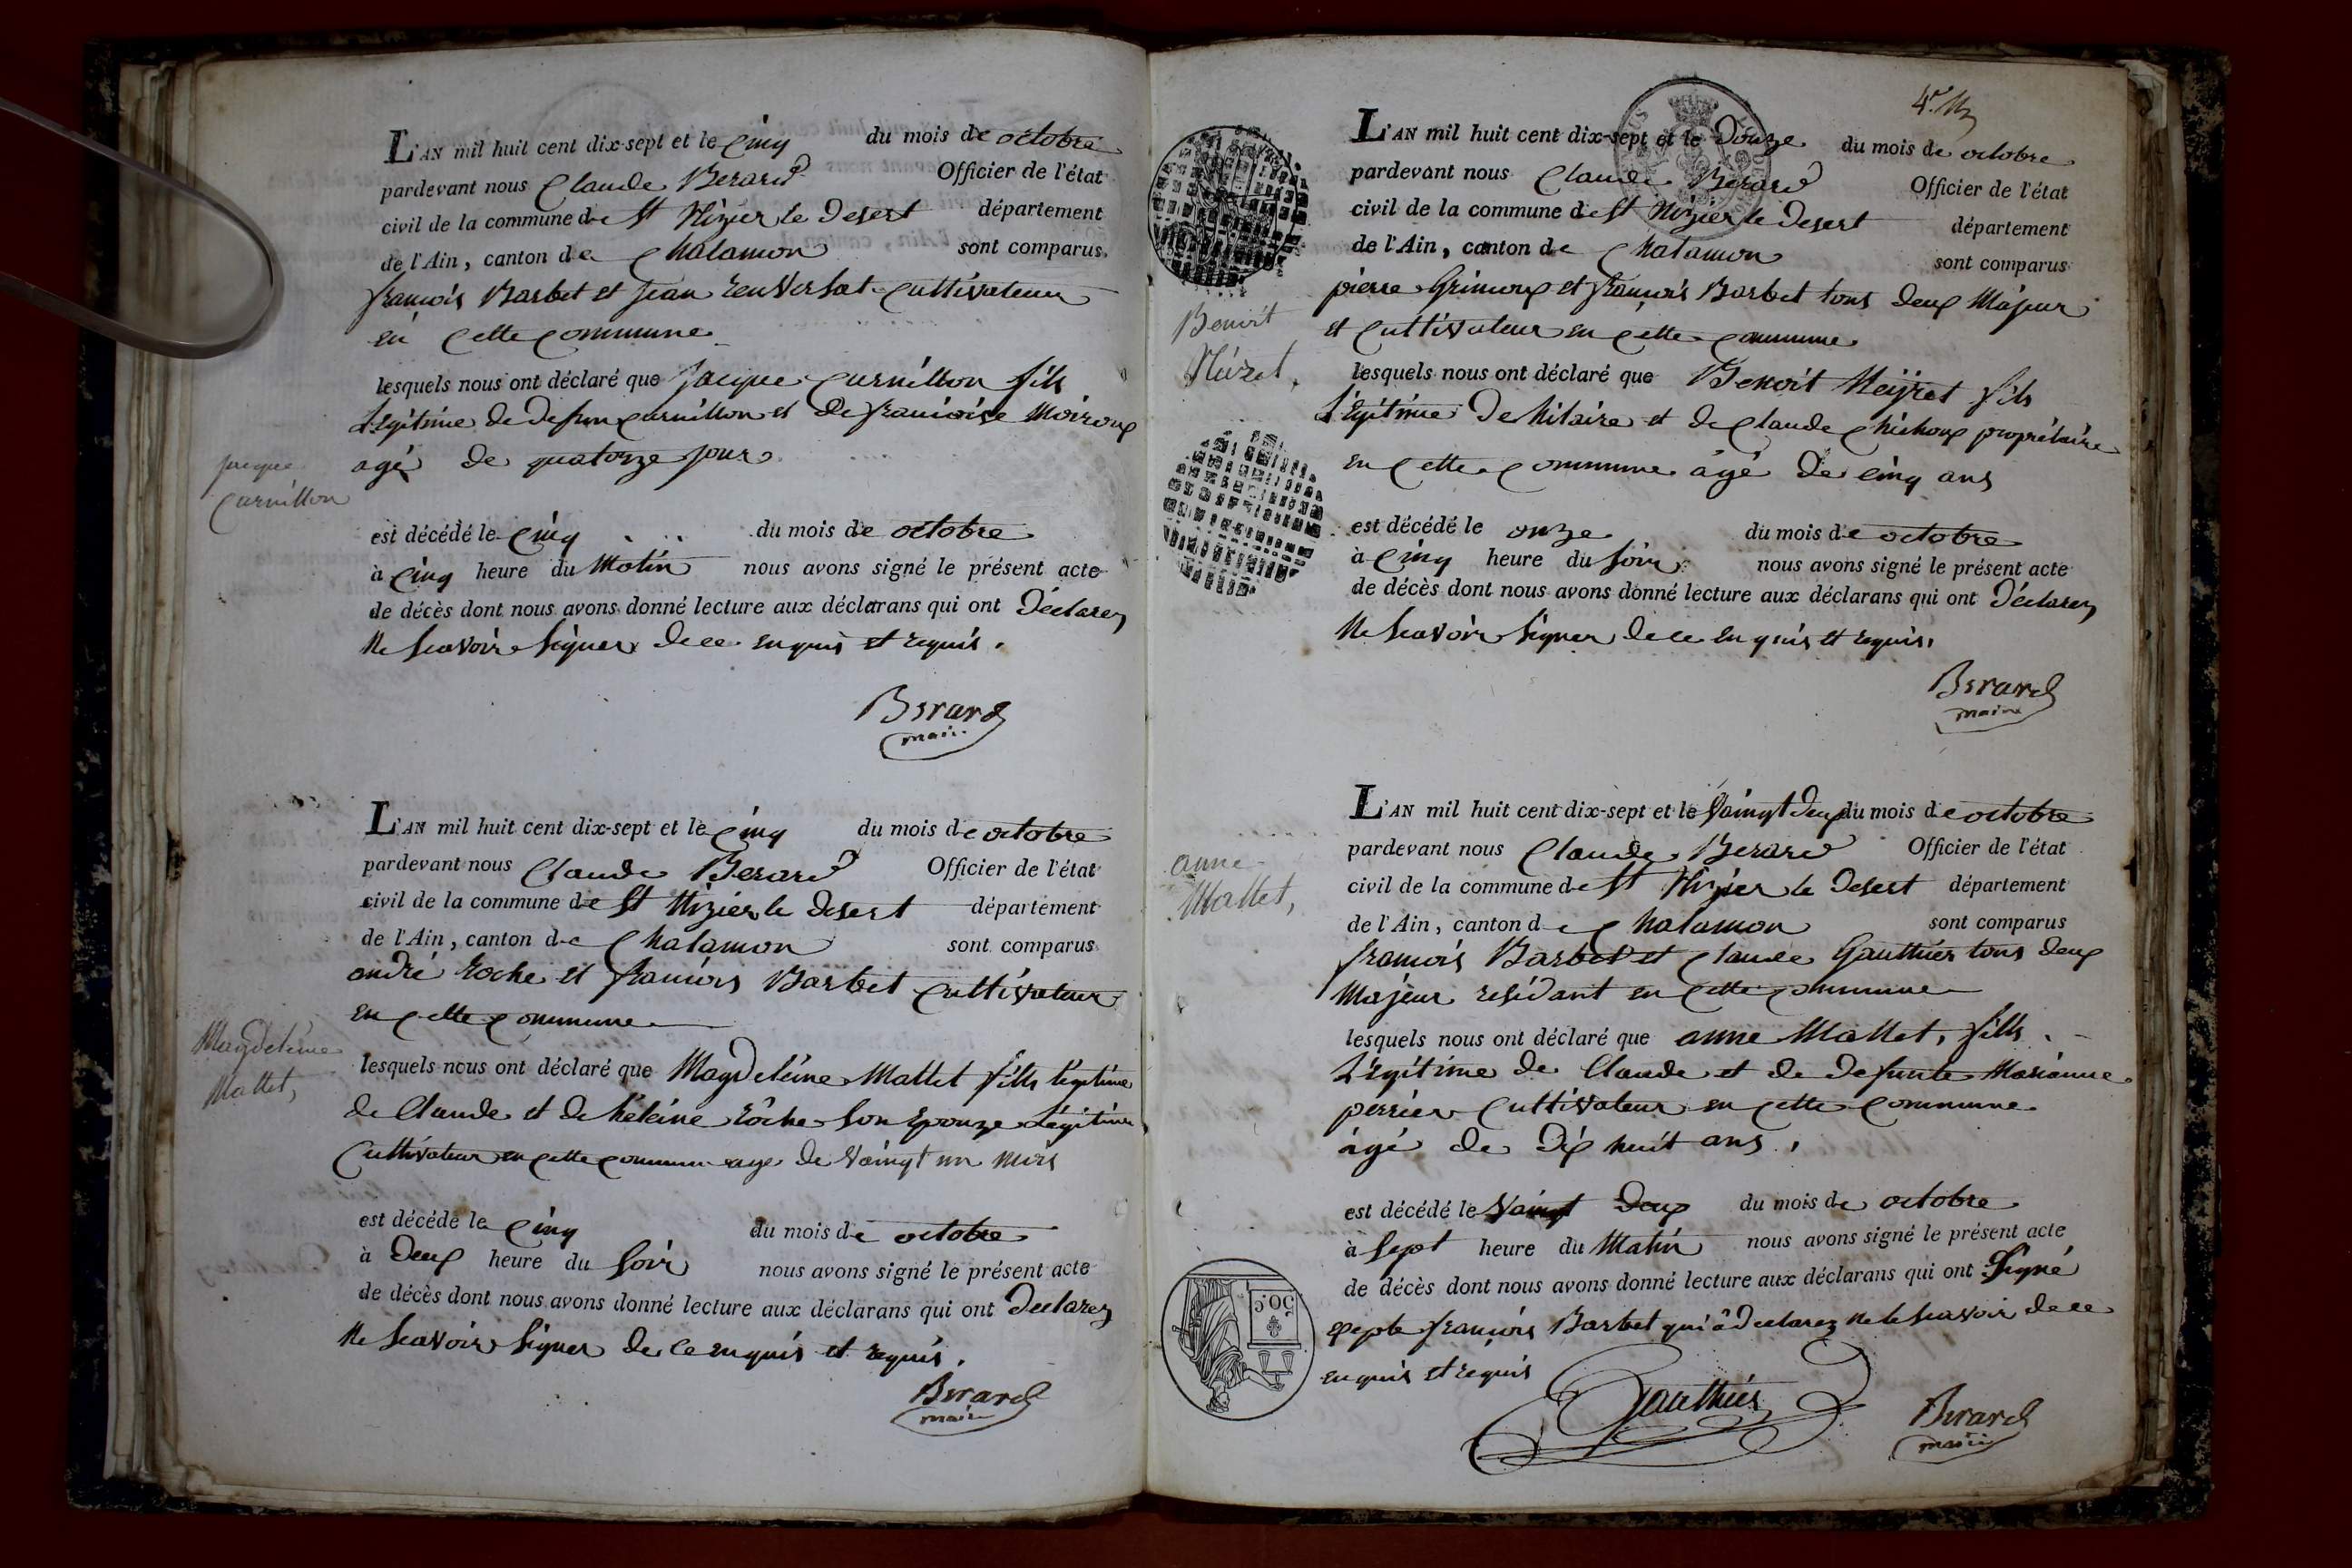 L'AN mil huit cent dix-sept et le cinq du mois de octobre
pardevant nous Claude Berard Officier de l'état
civil de la commune de St Nizier le Desert département
de l'Ain, canton de Chalamon sont comparus
francois Barbet et jean renversat cultivateur
en cette commune
lesquels nous ont déclaré que jacque curnillon fils
Légitime de defun curnillon et de francoise Moiroux
agé de quatorze jour
jacque
curnillon
est décédé le cinq du mois de octobre
à cinq heure du Matin nous avons signé le présent acte
de décès dont nous avons donné lecture aux déclarans qui ont Déclarez
Ne Scavoir Signer de ce enquis et requis.
Berard
maire
L'AN mil huit cent dix-sept et le cinq du mois de octobre
pardevant nous Claude Berard Officier de l'état
civil de la commune de St Nizier le Desert département
de l'Ain, canton de Chalamon sont comparus
andré Roche et francois Barbet cultivateur
en cette commune
Magdeleine
Mallet,
lesquels nous ont déclaré que Magdeleine Mallet fille legitime
de Claude et de héleine Roche Son Epouze Légitime
Cultivateur en cette commun age de Vaingt un Mois
est décédé le cinq du mois de octobre
à Deux heure du Soir nous avons signé le présent acte
de décès dont nous avons donné lecture aux déclarans qui ont Declarez
Ne Scavoir Signer de ce enquis et requis.
Berard
maire
L'AN mil huit cent dix-sept et le Douze du mois de octobre
pardevant nous Claude Berard Officier de l'état
civil de la commune de St Nizier le Desert département
de l'Ain, canton de Chalamon sont comparus
pierre Grimoux et francois Barbet tous deux Majeur
et cultivateur en cette commune
Benoit
lesquels nous ont déclaré que Benoit Neyret fils
Légitime de hilaire et de Claude Chichoux propriétaire
en cette commune âgé de cinq ans
est décédé le onze du mois de octobre
à cinq heure du Soir nous avons signé le présent acte
de décès dont nous avons donné lecture aux déclarans qui ont Déclarez
Ne Scavoir Signer de ce enquis et requis.
Berard
maire
L'AN mil huit cent dix-sept et le Vaingt deux du mois de octobre
pardevant nous Claude Berard Officier de l'état
civil de la commune de St Nizier le Desert département
de l'Ain, canton de Chalamon sont comparus
anne
Mallet,
francois Barbet et Claude Gauthier tous deux
Majeur residant en cette commune
lesquels nous ont déclaré que anne Mallet, fille
Légitime de Claude et de defunte Marianne
perrier Cultivateur en cette commune
âgé de Dix huit ans.
est décédé le Vaingt Deux du mois de octobre
à Sept heure du Matin nous avons signé le présent acte
de décès dont nous avons donné lecture aux déclarans qui ont Signé
Exepte francois Barbet qui a Declarez ne le Scavoir de ce
enquis et requis
50 C.
Gauthier
Berard
maire